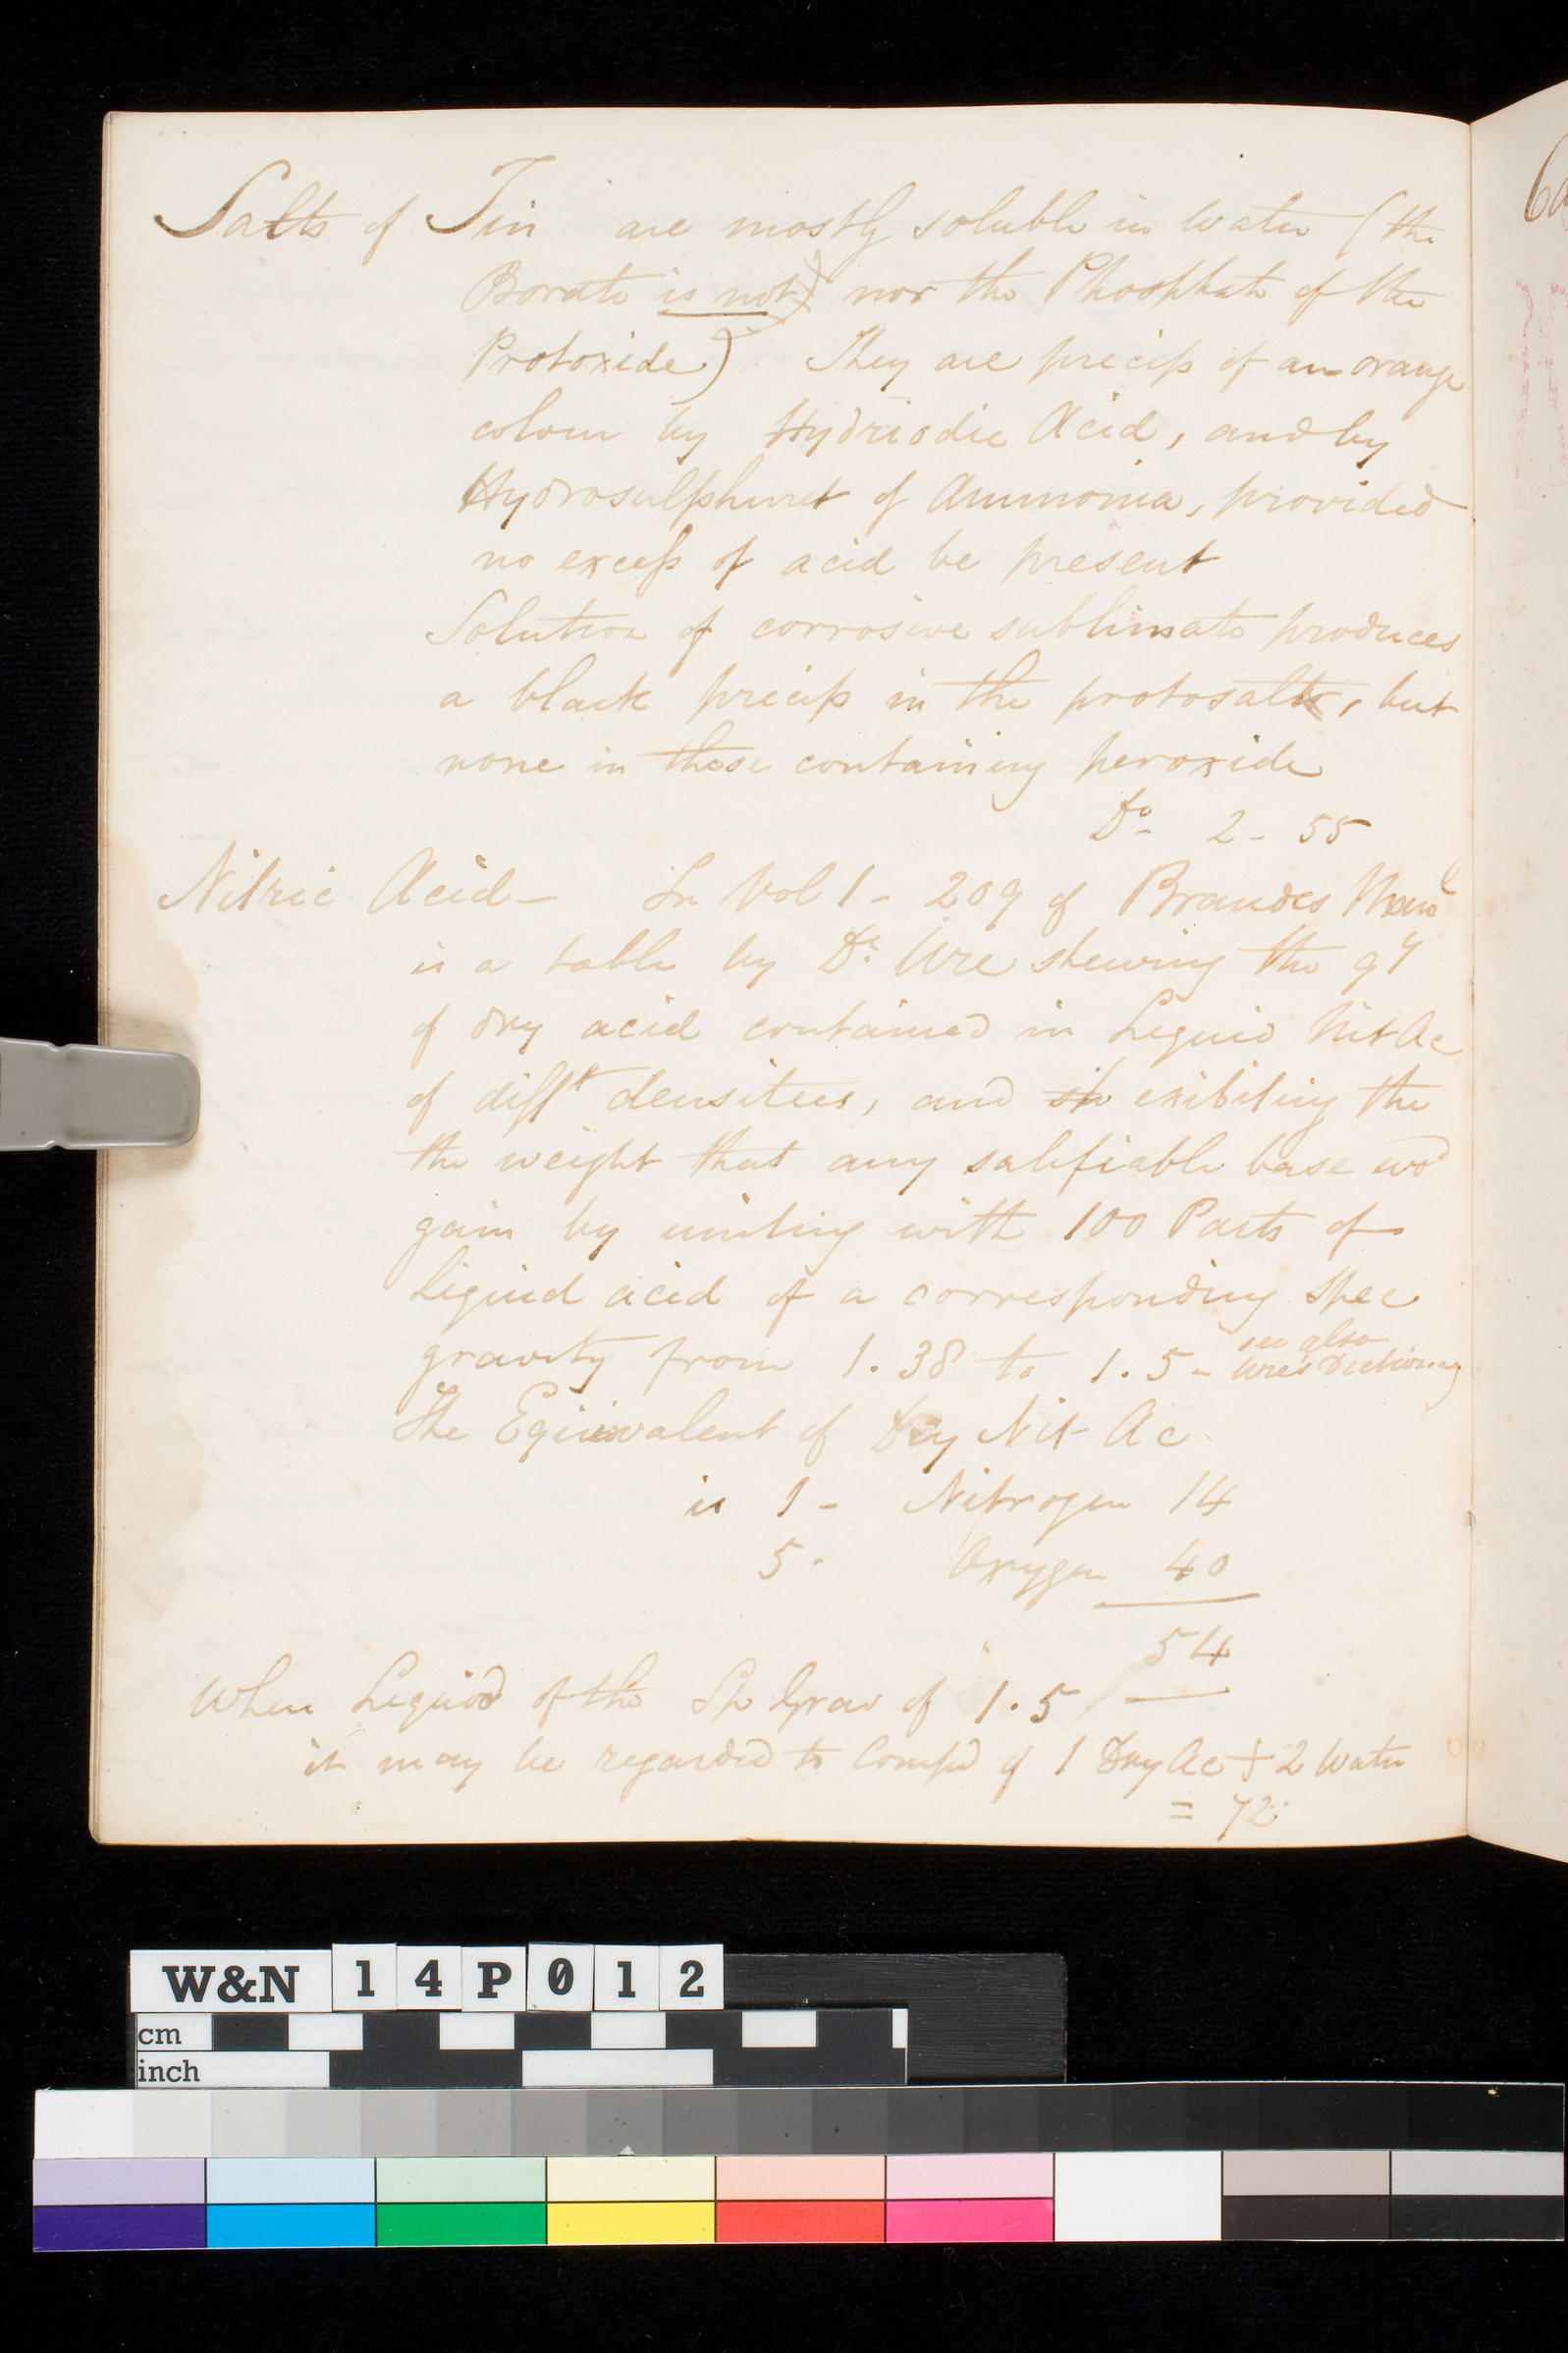 Salts of Tin are mostly soluble in Water (the
Borate is not) nor the Phosphate of the
Protoxide) They are precip of an orange
colour by Hydriodic Acid, and by
Hydrosulphuret of Ammonia, provided
no excess of acid be present
Solution of corrosive sublimate produces
a black precip in the protosalts, but
none in those containing peroxide
Do 2 - 55
Nitric Acid - In Vol 1 - 209 of Brandes Manl
is a table by Dr. Ure shewing the qy
of dry acid contained in Liquid Nit Ac
of difft densities, and sh exibiting the
the weight that any salifiable base wod
gain by uniting with 100 Parts of
Liquid acid of a corresponding Spec
gravity from 1.38 to 1.5 - see also
Ures Dictionary
The Equivalent of Dry Nit Ac
is 1 - Nitrogen 14
5 - Oxygen 40
54
When Liquid of the Sp Grav of 1.5
it may be regarded to Compd of 1 Dry Ac + 2 Water
= 72
W&N 14P012
cm
inch